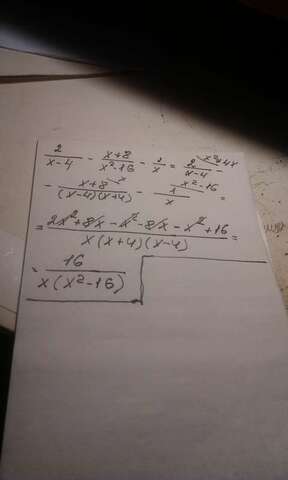 2/(x-4) - (x+8)/(x²-16) - 1/x = 2/(x-4) x²+4x -
- (x+8)/((x-4)(x+4)) x - 1/x x²-16 =
= (2x²+8x-x²-8x-x²+16)/(x(x+4)(x-4)) =
= 16/(x(x²-16))